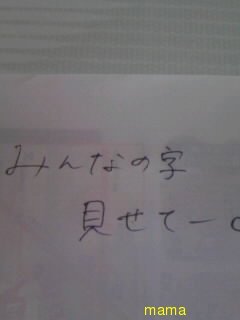 みんなの字
見せてー。
mama